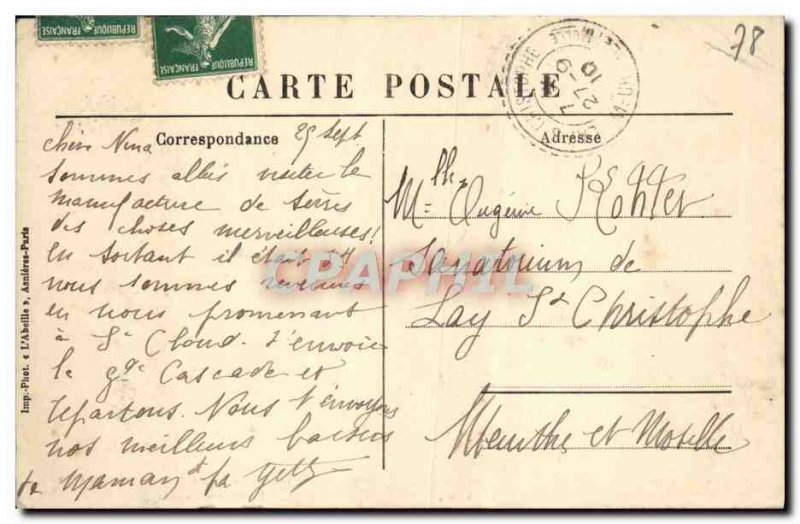 REPUBLIQUE FRANÇAISE
REPUBLIQUE FRANÇAISE
78
CARTE POSTALE
Correspondance
Adresse
25 Sept
Chère Nina
sommes allés visiter la
manufacture de Sèvres
des choses merveilleuses!
en sortant il était
nous sommes revenus
en nous promenant
à St Cloud. t'envoie
la gde Cascade et
repartons. Nous t'envoyons
nos meilleurs baisers
Maman
Mlle Eugénie Kohler
Sanatorium de
Lay St Christophe
Meurthe et Moselle
27 - 9
10
Imp.-Phot. « L'Abeille », Asnières-Paris
CPAPHIL